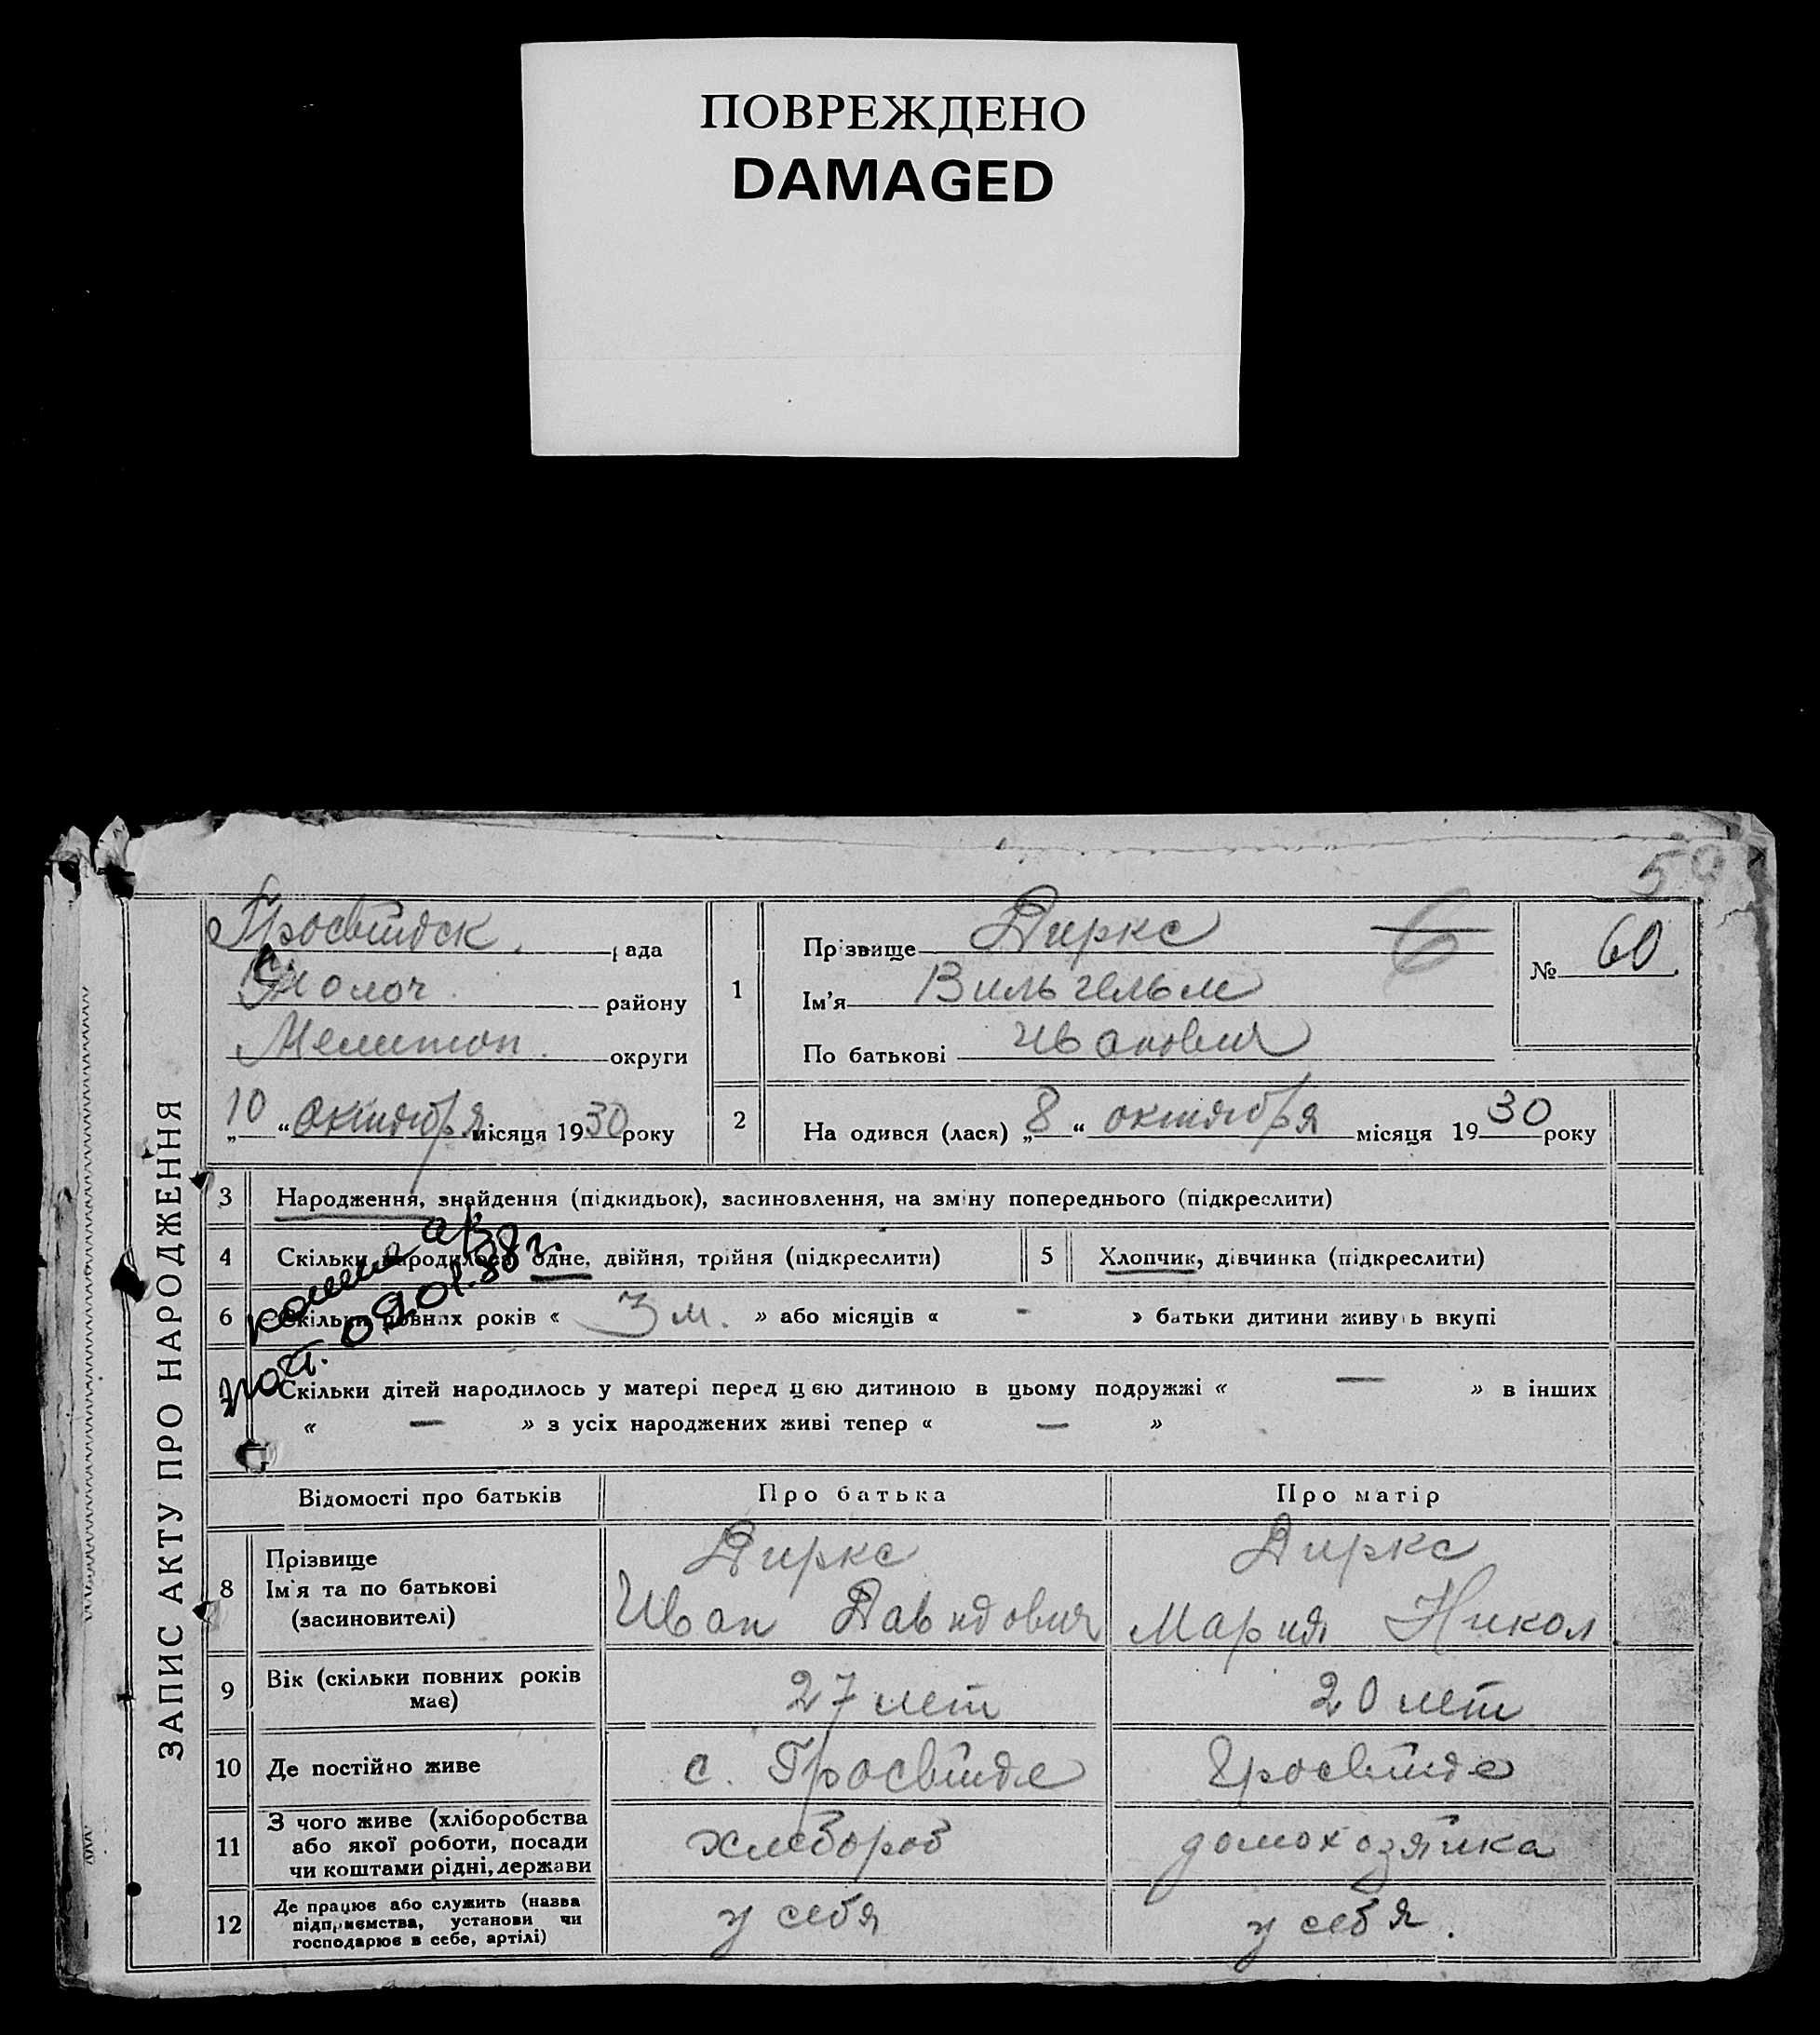 ПОВРЕЖДЕНО
DAMAGED
59
ЗАПИС АКТУ ПРО НАРОДЖЕННЯ
Гросвтдск. рада
Молоч. району
Мелитоп. округи
„10“ октября місяця 1930 року
1
Прізвище Диркс
Ім'я Вильгельм
По батькові Иванович
6
№ 60
2 На одився (лася) „8“ октября місяця 1930 року
3 Народження, знайдення (підкидьок), засиновлення, на зміну попереднього (підкреслити)
4 Скільки народилося одне, двійня, трійня (підкреслити)
5 Хлопчик, дівчинка (підкреслити)
6 Скільки повних років « 3 м. » або місяців « - » батьки дитини живуть вкупі
09.01.88 г.
Скільки дітей народилось у матері перед цією дитиною в цьому подружжі « — » в інших
« — » з усіх народжених живі тепер « — »
Відомості про батьків Про батька Про матір
8 Прізвище
Ім'я та по батькові
(засиновителі)
Диркс
Иван Давидович
Диркс
Мария Никол.
9 Вік (скільки повних років
має)
27 лет
20 лет
10 Де постійно живе
с. Гросвтиде
Гросвтиде
11 З чого живе (хліборобства
або якої роботи, посади
чи коштами рідні, держави
хлебороб
домохозяйка
12 Де працює або служить (назва
підприємства, установи чи
господарює в себе, артілі)
у себя
у себя.